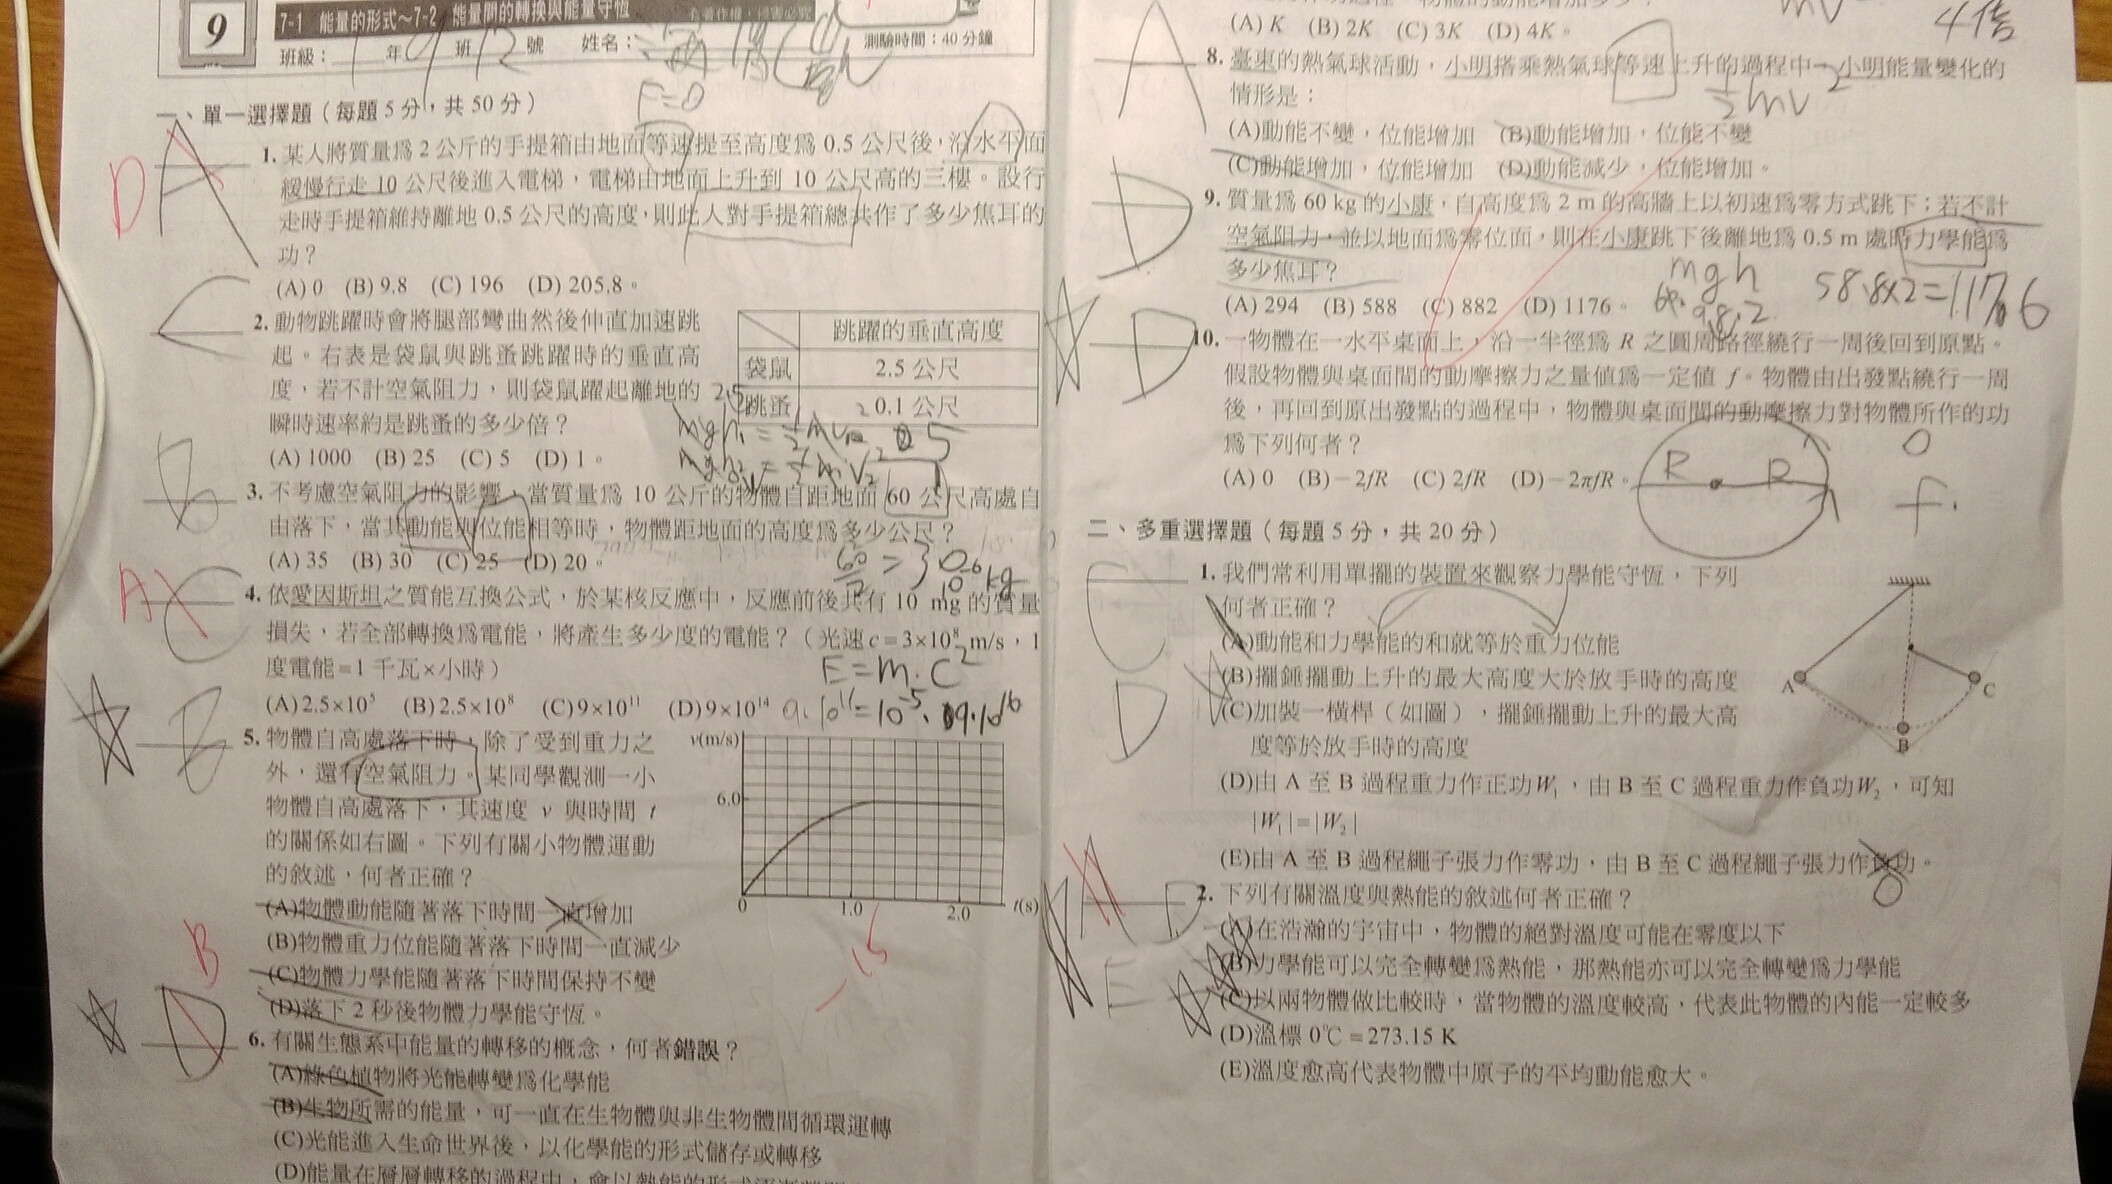 9
7-1 能量的形式～7-2 能量間的轉換與能量守恆
班級： 1 年 9 班 12 號 姓名：
測驗時間：40分鐘
F=0
一、單一選擇題（每題5分，共50分）
D A
1. 某人將質量為2公斤的手提箱由地面等速提至高度為0.5公尺後，沿水平面
緩慢行走10公尺後進入電梯，電梯由地面上升到10公尺高的三樓。設行
走時手提箱維持離地0.5公尺的高度，則此人對手提箱總共作了多少焦耳的
功？
(A) 0 (B) 9.8 (C) 196 (D) 205.8。
C
2. 動物跳躍時會將腿部彎曲然後伸直加速跳
起。右表是袋鼠與跳蚤跳躍時的垂直高
度，若不計空氣阻力，則袋鼠躍起離地的
瞬時速率約是跳蚤的多少倍？
(A) 1000 (B) 25 (C) 5 (D) 1。
跳躍的垂直高度
袋鼠 2.5公尺
跳蚤 0.1公尺
B
3. 不考慮空氣阻力的影響，當質量為10公斤的物體自距地面60公尺高處自
由落下，當其動能與位能相等時，物體距地面的高度為多少公尺？
(A) 35 (B) 30 (C) 25 (D) 20。
60/2 = 30
10⁻⁶ kg
A C
4. 依愛因斯坦之質能互換公式，於某核反應中，反應前後共有10 mg的質量
損失，若全部轉換為電能，將產生多少度的電能？（光速c＝3×10⁸ m/s，1
度電能＝1千瓦×小時）
E=m·C²
(A) 2.5×10⁵ (B) 2.5×10⁸ (C) 9×10¹¹ (D) 9×10¹⁴
9·10¹¹=10⁻⁵·9·10¹⁶
B
5. 物體自高處落下時，除了受到重力之
外，還有空氣阻力。某同學觀測一小
物體自高處落下，其速度 v 與時間 t
的關係如右圖。下列有關小物體運動
的敘述，何者正確？
(A)物體動能隨著落下時間一直增加
(B)物體重力位能隨著落下時間一直減少
(C)物體力學能隨著落下時間保持不變
(D)落下2秒後物體力學能守恆。
v(m/s)
6.0
0 1.0 2.0 t(s)
-15
B D
6. 有關生態系中能量的轉移的概念，何者錯誤？
(A)綠色植物將光能轉變為化學能
(B)生物所需的能量，可一直在生物體與非生物體間循環運轉
(C)光能進入生命世界後，以化學能的形式儲存或轉移
(D)能量在層層轉移的過程中，會以熱能的形式
(A) K (B) 2K (C) 3K (D) 4K。
4倍
A
8. 臺東的熱氣球活動，小明搭乘熱氣球等速上升的過程中，小明能量變化的
情形是：
½mv²
(A)動能不變，位能增加 (B)動能增加，位能不變
(C)動能增加，位能增加 (D)動能減少，位能增加。
D
9. 質量為60 kg的小康，自高度為2 m的高牆上以初速為零方式跳下；若不計
空氣阻力，並以地面為零位面，則在小康跳下後離地為0.5 m處時力學能為
多少焦耳？
(A) 294 (B) 588 (C) 882 (D) 1176。
mgh
60·9.8·2
58.8×2=117.6
D
10. 一物體在一水平桌面上，沿一半徑為 R 之圓周路徑繞行一周後回到原點。
假設物體與桌面間的動摩擦力之量值為一定值 f。物體由出發點繞行一周
後，再回到原出發點的過程中，物體與桌面間的動摩擦力對物體所作的功
為下列何者？
(A) 0 (B)－2fR (C) 2fR (D)－2πfR。
R R
0
f.
二、多重選擇題（每題5分，共20分）
C
D
1. 我們常利用單擺的裝置來觀察力學能守恆，下列
何者正確？
(A)動能和力學能的和就等於重力位能
(B)擺錘擺動上升的最大高度大於放手時的高度
(C)加裝一橫桿（如圖），擺錘擺動上升的最大高
度等於放手時的高度
(D)由 A 至 B 過程重力作正功W₁，由 B 至 C 過程重力作負功W₂，可知
|W₁|＝|W₂|
(E)由 A 至 B 過程繩子張力作零功，由 B 至 C 過程繩子張力作負功。
0
A
B
C
A D
E
2. 下列有關溫度與熱能的敘述何者正確？
(A)在浩瀚的宇宙中，物體的絕對溫度可能在零度以下
(B)力學能可以完全轉變為熱能，那熱能亦可以完全轉變為力學能
(C)以兩物體做比較時，當物體的溫度較高，代表此物體的內能一定較多
(D)溫標 0℃＝273.15 K
(E)溫度愈高代表物體中原子的平均動能愈大。